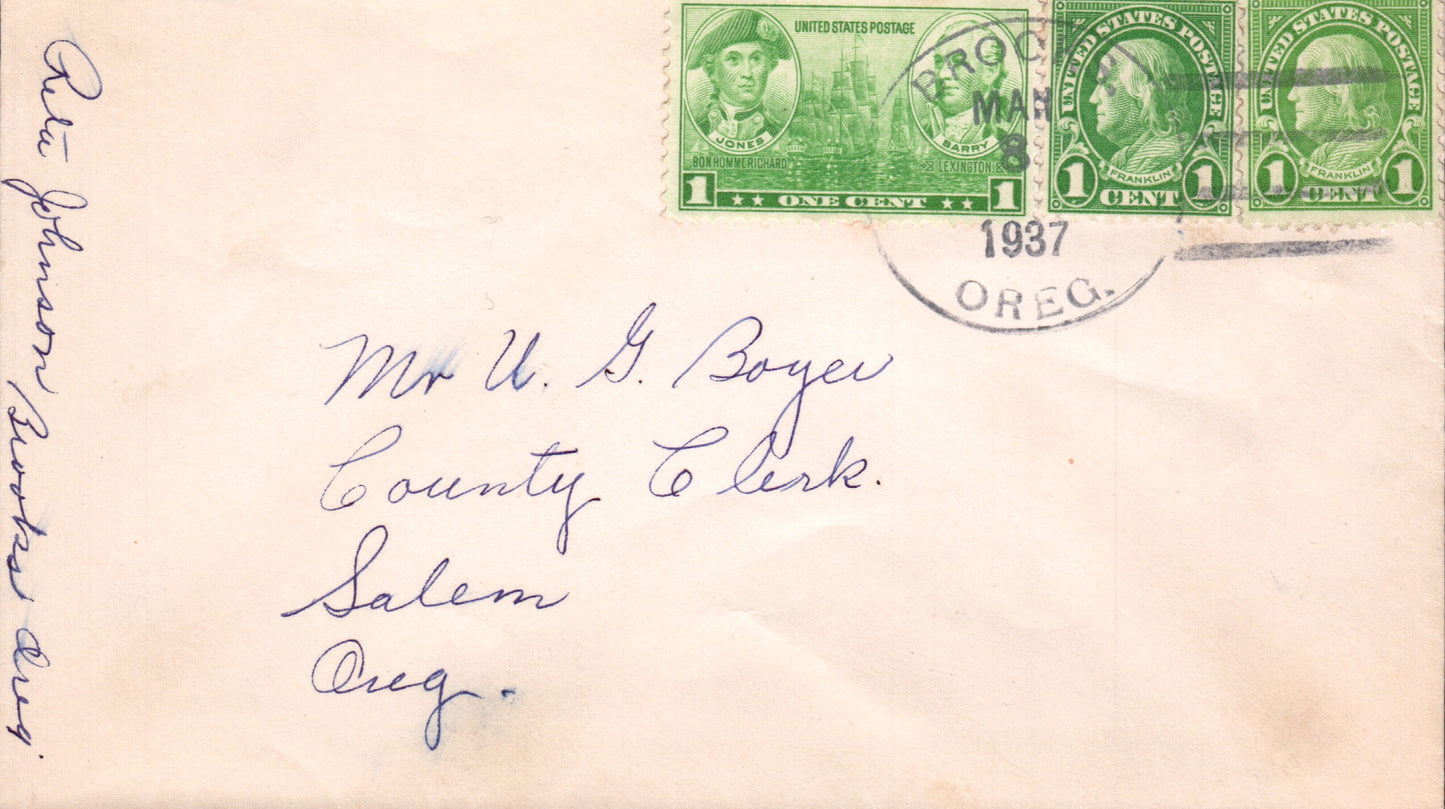 Reta Johnson Brooks Oreg.
UNITED STATES POSTAGE
JONES
BARRY
BON HOMME RICHARD
LEXINGTON
1 ONE CENT 1
UNITED STATES POSTAGE
FRANKLIN
1 CENT 1
UNITED STATES POSTAGE
FRANKLIN
1 CENT 1
BROOKS
MAR
8
1937
OREG.
Mr U. G. Boyer
County Clerk.
Salem
Oreg.